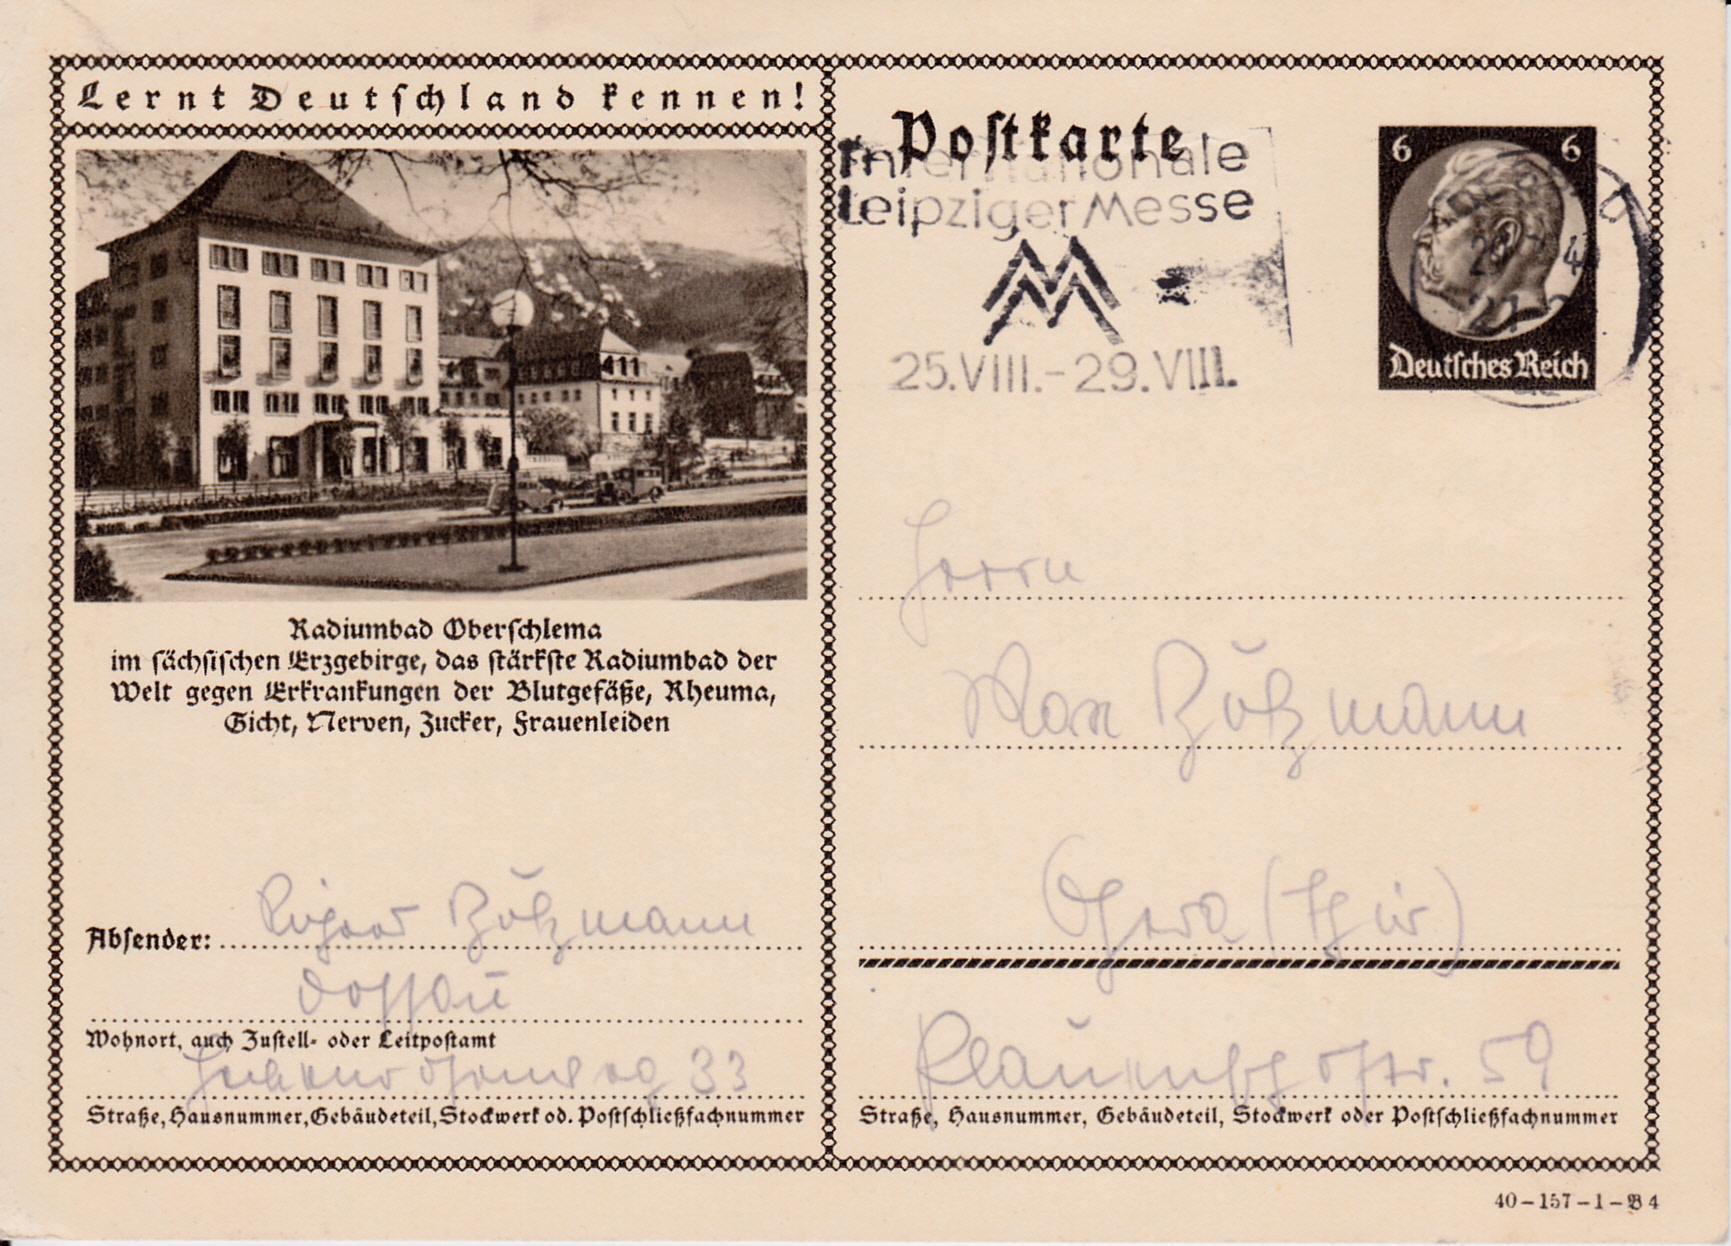 Lernt Deutschland kennen!
Radiumbad Oberschlema
im sächsischen Erzgebirge, das stärkste Radiumbad der
Welt gegen Erkrankungen der Blutgefäße, Rheuma,
Gicht, Nerven, Zucker, Frauenleiden
Absender:
Dessau
Wohnort, auch Zustell- oder Leitpostamt
33
Straße, Hausnummer, Gebäudeteil, Stockwerk od. Postschließfachnummer
Postkarte
Internationale
Leipziger Messe
25.VIII.-29.VIII.
6 6
Deutsches Reich
Herrn
Max
Gera (Thür)
59
Straße, Hausnummer, Gebäudeteil, Stockwerk oder Postschließfachnummer
40-157-1-B4